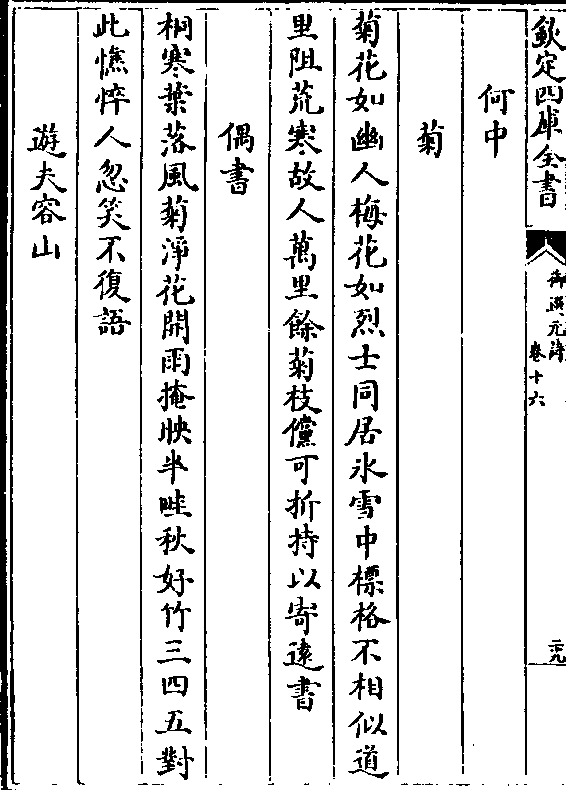 欽定四庫全書
御選元詩
卷十六
二十九
何中
菊
菊花如幽人梅花如烈士同居氷雪中標格不相似道
里阻荒寒故人萬里餘菊枝儻可折持以寄遠書
偶書
桐寒葉落風菊淨花開雨掩映半畦秋好竹三四五對
此憔悴人忽笑不復語
遊夫容山